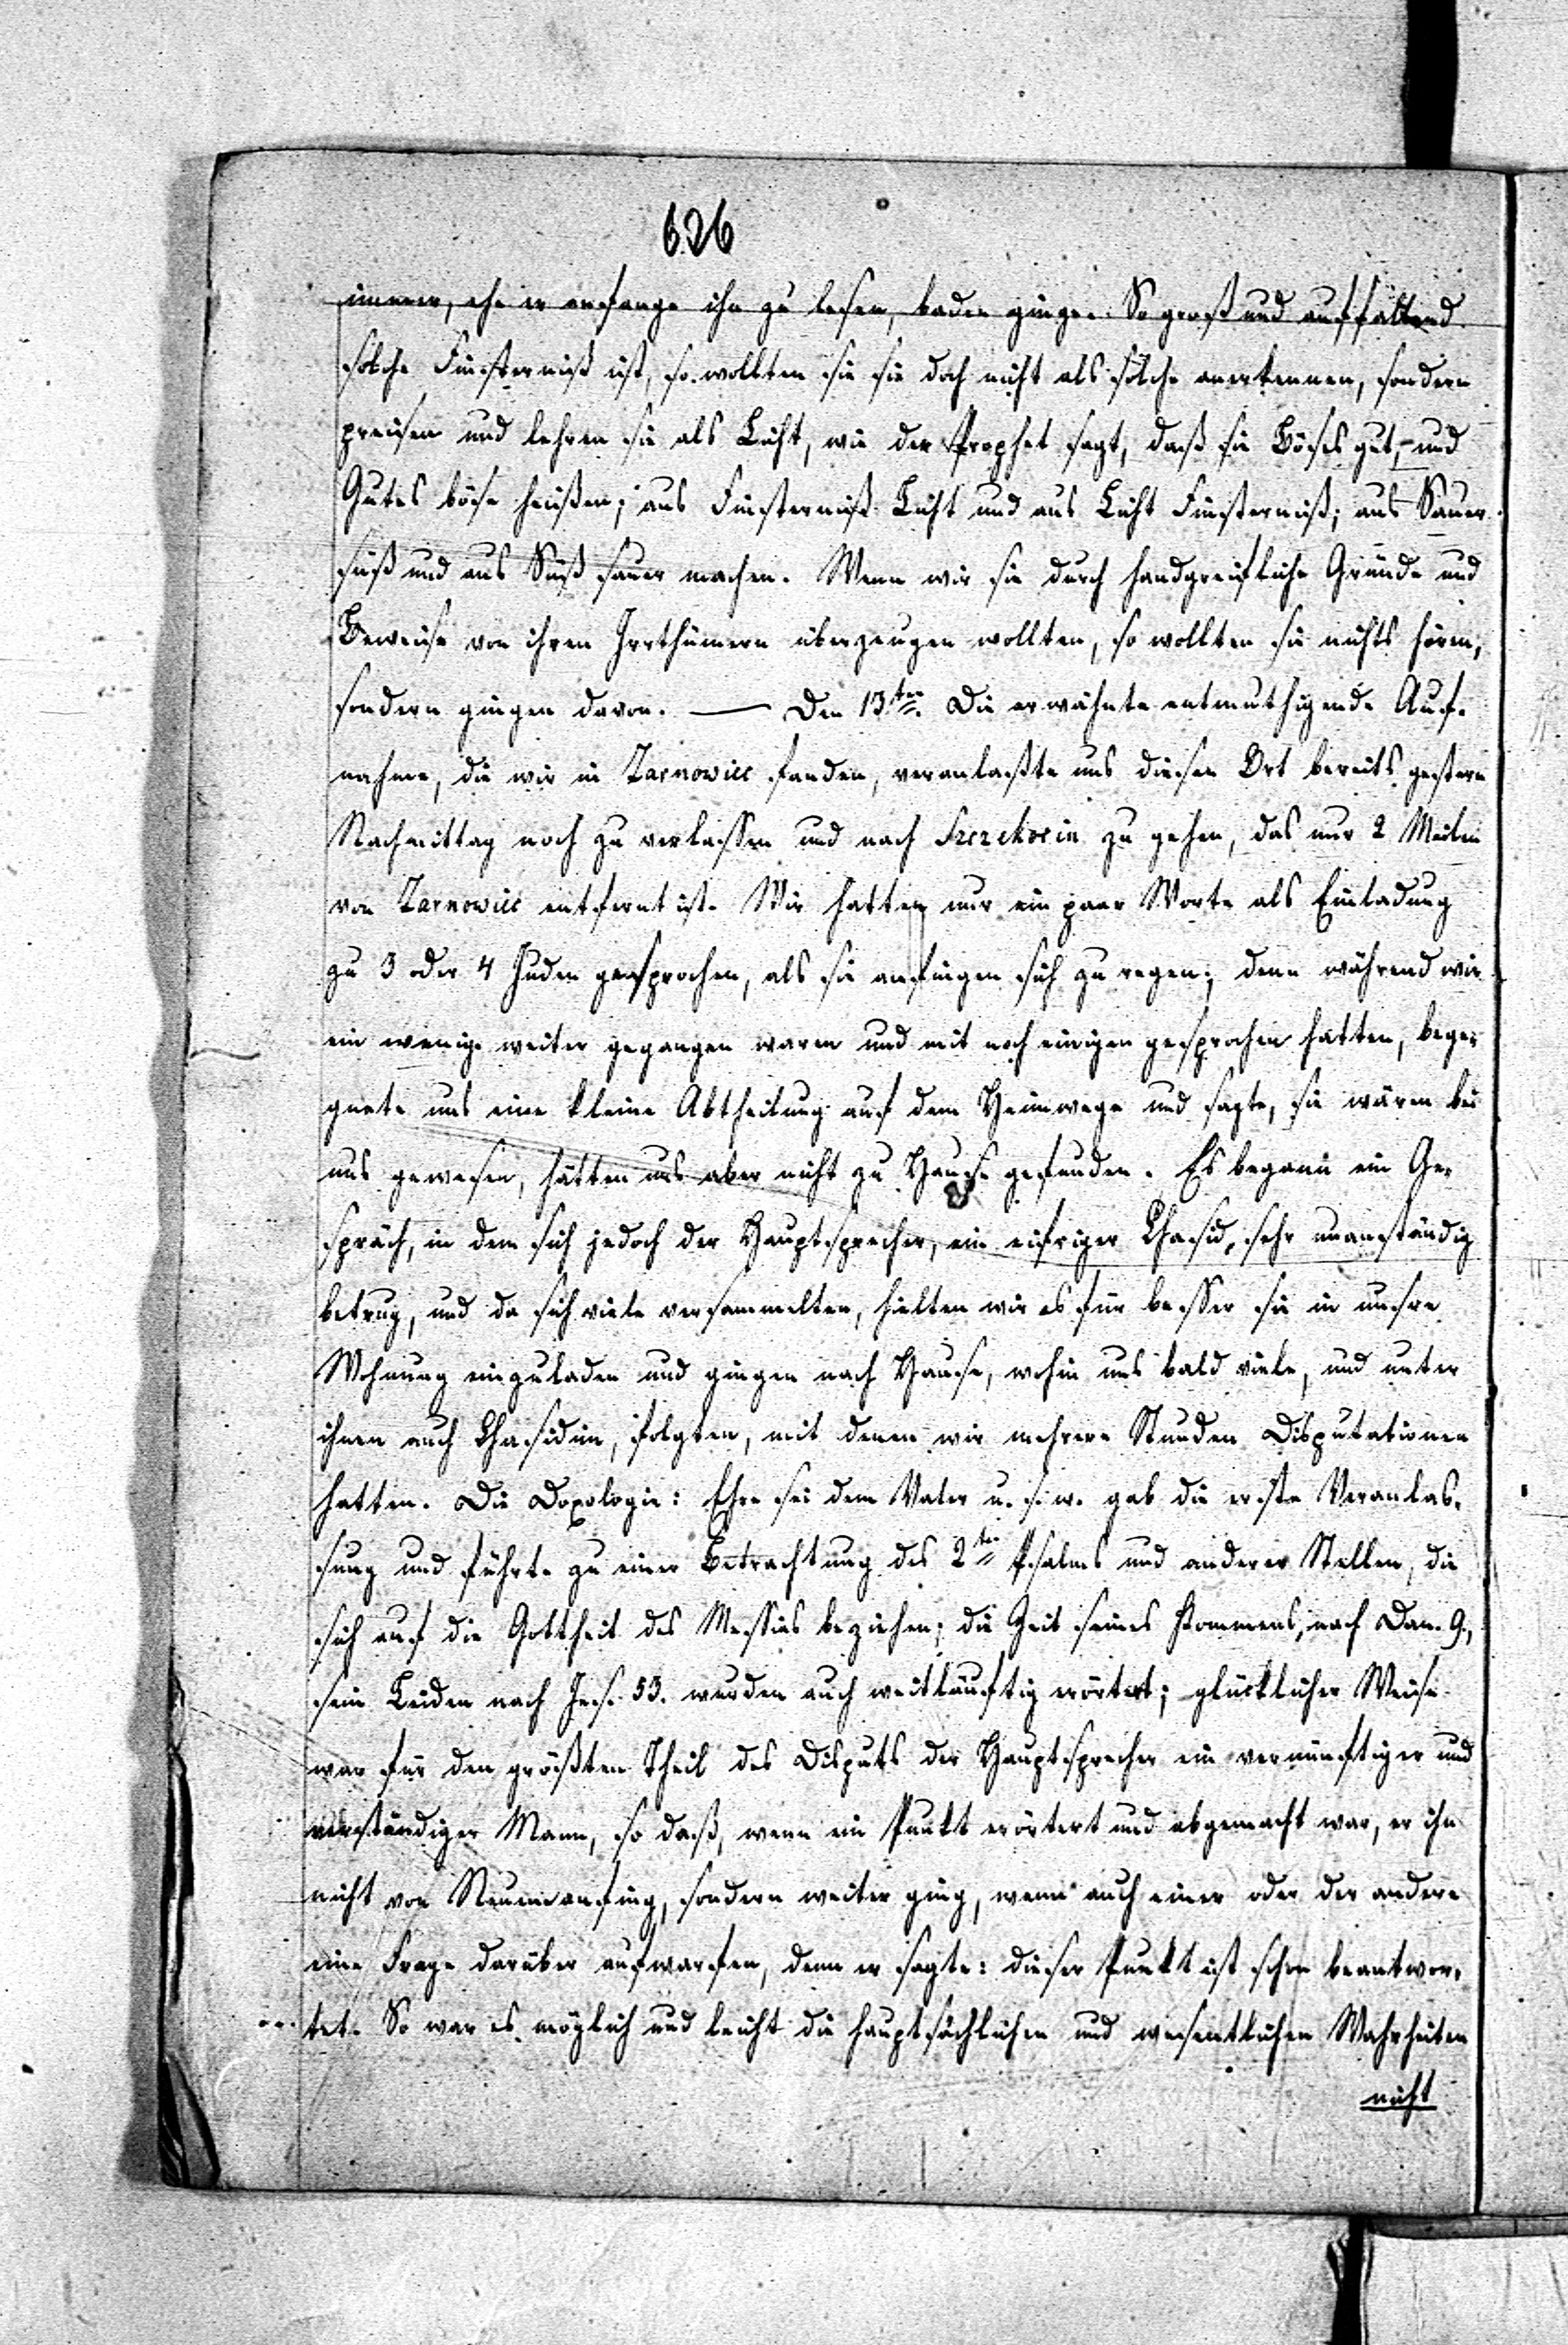 626
immer, ehe er anfange ihn zu lesen, baden ginge. So groß und auffallend
solche Finsterniß ist, so wollten sie sie doch nicht als solche anerkennen, sondern
preisen und lehren sie als Licht, wie der Prophet sagt, daß sie Böses gut, und
Gutes böse heißen; aus Finsterniß Licht und aus Licht Finsterniß; aus Sauer
süß und aus Süß sauer machen. Wenn wir sie durch handgreifliche Gründe und
Beweise von ihren Irrthümern überzeugen wollten, so wollten sie nichts hören,
sondern gingen davon. — Den 13ten. Die erwähnte entmuthigende Auf-
nahme, die wir in Zarnowiec fanden, veranlaßte uns diesen Ort bereits gestern
Nachmittag noch zu verlassen und nach Szczekocin zu gehen, das nur 2 Meilen
von Zarnowiec entfernt ist. Wir hatten nur ein paar Worte als Einladung
zu 3 oder 4 Juden gesprochen, als sie anfingen sich zu regen; denn während wir
ein wenig weiter gegangen waren und mit noch einigen gesprochen hatten, bege-
gnete uns eine kleine Abtheilung auf dem Heimwege und sagte, sie wären bei
uns gewesen, hätten uns aber nicht zu Hause gefunden. Es begann ein Ge-
spräch, in dem sich jedoch der Hauptsprecher, ein eifriger Chasid, sehr unanständig
betrug, und da sich viele versammelten, hielten wir es für besser sie in unsre
Wohnung einzuladen und gingen nach Hause, wohin uns bald viele, und unter
ihnen auch Chasidim, folgten, mit denen wir mehrere Stunden Disputationen
hatten. Die Doxologie: Ehre sei dem Vater u. s. w. gab die erste Veranlas-
sung und führte zu einer Betrachtung des 2ten Psalms und anderer Stellen, die
sich auf die Gottheit des Messias beziehen; die Zeit seines Kommens, nach Dan. 9.,
sein Leiden nach Jes. 53. wurden auch weitläuftig erörtert; glücklicher Weise
war für den größten Theil des Disputs der Hauptsprecher ein vernünftiger und
verständiger Mann, so daß, wenn ein Punkt erörtert und abgemacht war, er ihn
nicht von Neuem anfing, sondern weiter ging, wenn auch einer oder der andere
eine Frage darüber aufwarfen, denn er sagte: dieser Punkt ist schon beantwor-
tet. So war es möglich und leicht die hauptsächlichen und wesentlichen Wahrheiten
nicht